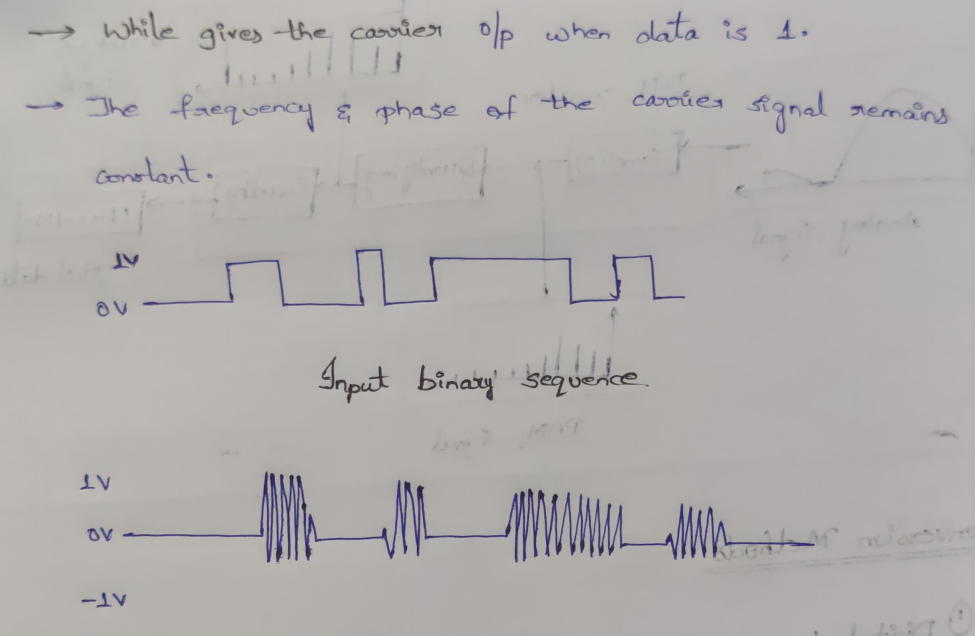 → While gives the carrier o/p when data is 1.
→ The frequency & phase of the carrier signal remains
constant.
1V
0V
Input binary sequence
1V
0V
-1V